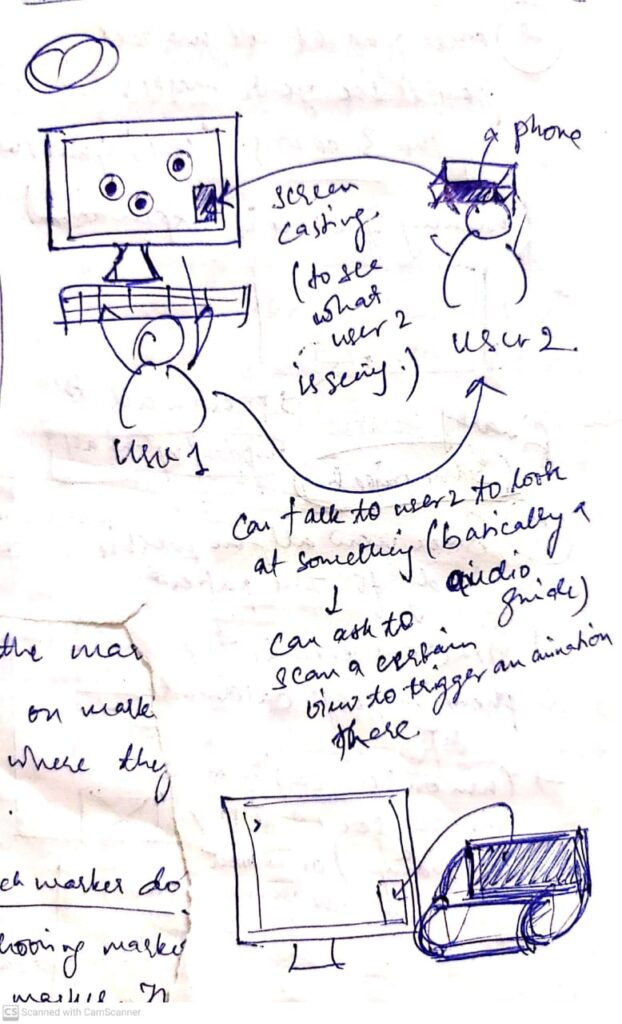 phone
screen
casting.
(to see
what
user 2
is seing.)
user 2.
user 1
can talk to user 2 to look
at something (basically a
audio
guide)
↓
can ask to
scan a certain
view to trigger an animation
there
the mar
on mark
where they
ch marker do
hoosing marke
marker. If
CS Scanned with CamScanner